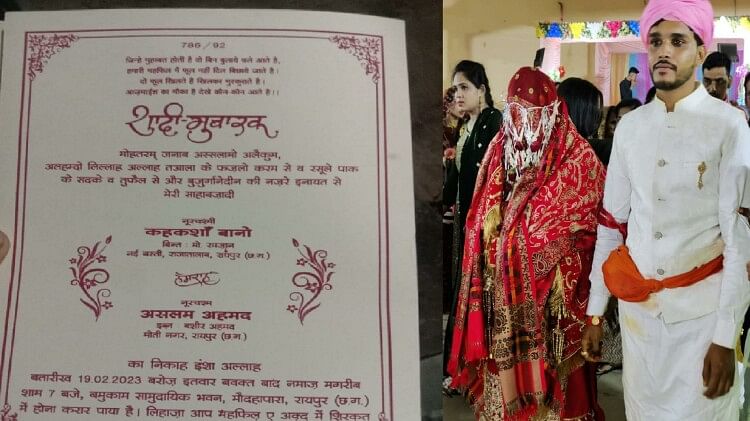 786/92
जिन्हे मुहब्बत होती है वो बिन बुलाये चले आते है,
हमारी महफिल में फूल नहीं दिल बिछाये जाते है।
दो फूल खिलते है खिलकर मुस्कुराते है।
आज़माईश का मौका है देखे कौन-कौन आते है।।
शादी-मुबारक
मोहतरम् जनाब अस्सलामो अलैकुम,
अलहम्दो लिल्लाह अल्लाह तआला के फजलो करम से व रसूले पाक
के सदके व तुफैल से और बुजुर्गानेदीन की नज़रे इनायत से
मेरी साहाबजादी
नूरचश्मी
कहकशाँ बानो
बिन्त : मो. रमज़ान
नई बस्ती, राजातालाब, रायपुर (छ.ग.)
हमराह
नूरचश्म
असलम अहमद
इब्न बशीर अहमद
मोती नगर, रायपुर (छ.ग.)
का निकाह इंशा अल्लाह
बतारीख 19.02.2023 बरोज़ इतवार बवक्त बाद नमाज़ मगरीब
शाम 7 बजे, बमुकाम सामुदायिक भवन, मौदहापारा, रायपुर (छ.ग.)
में होना करार पाया है। लिहाज़ा आप महफिल ए अक्द में शिरकत